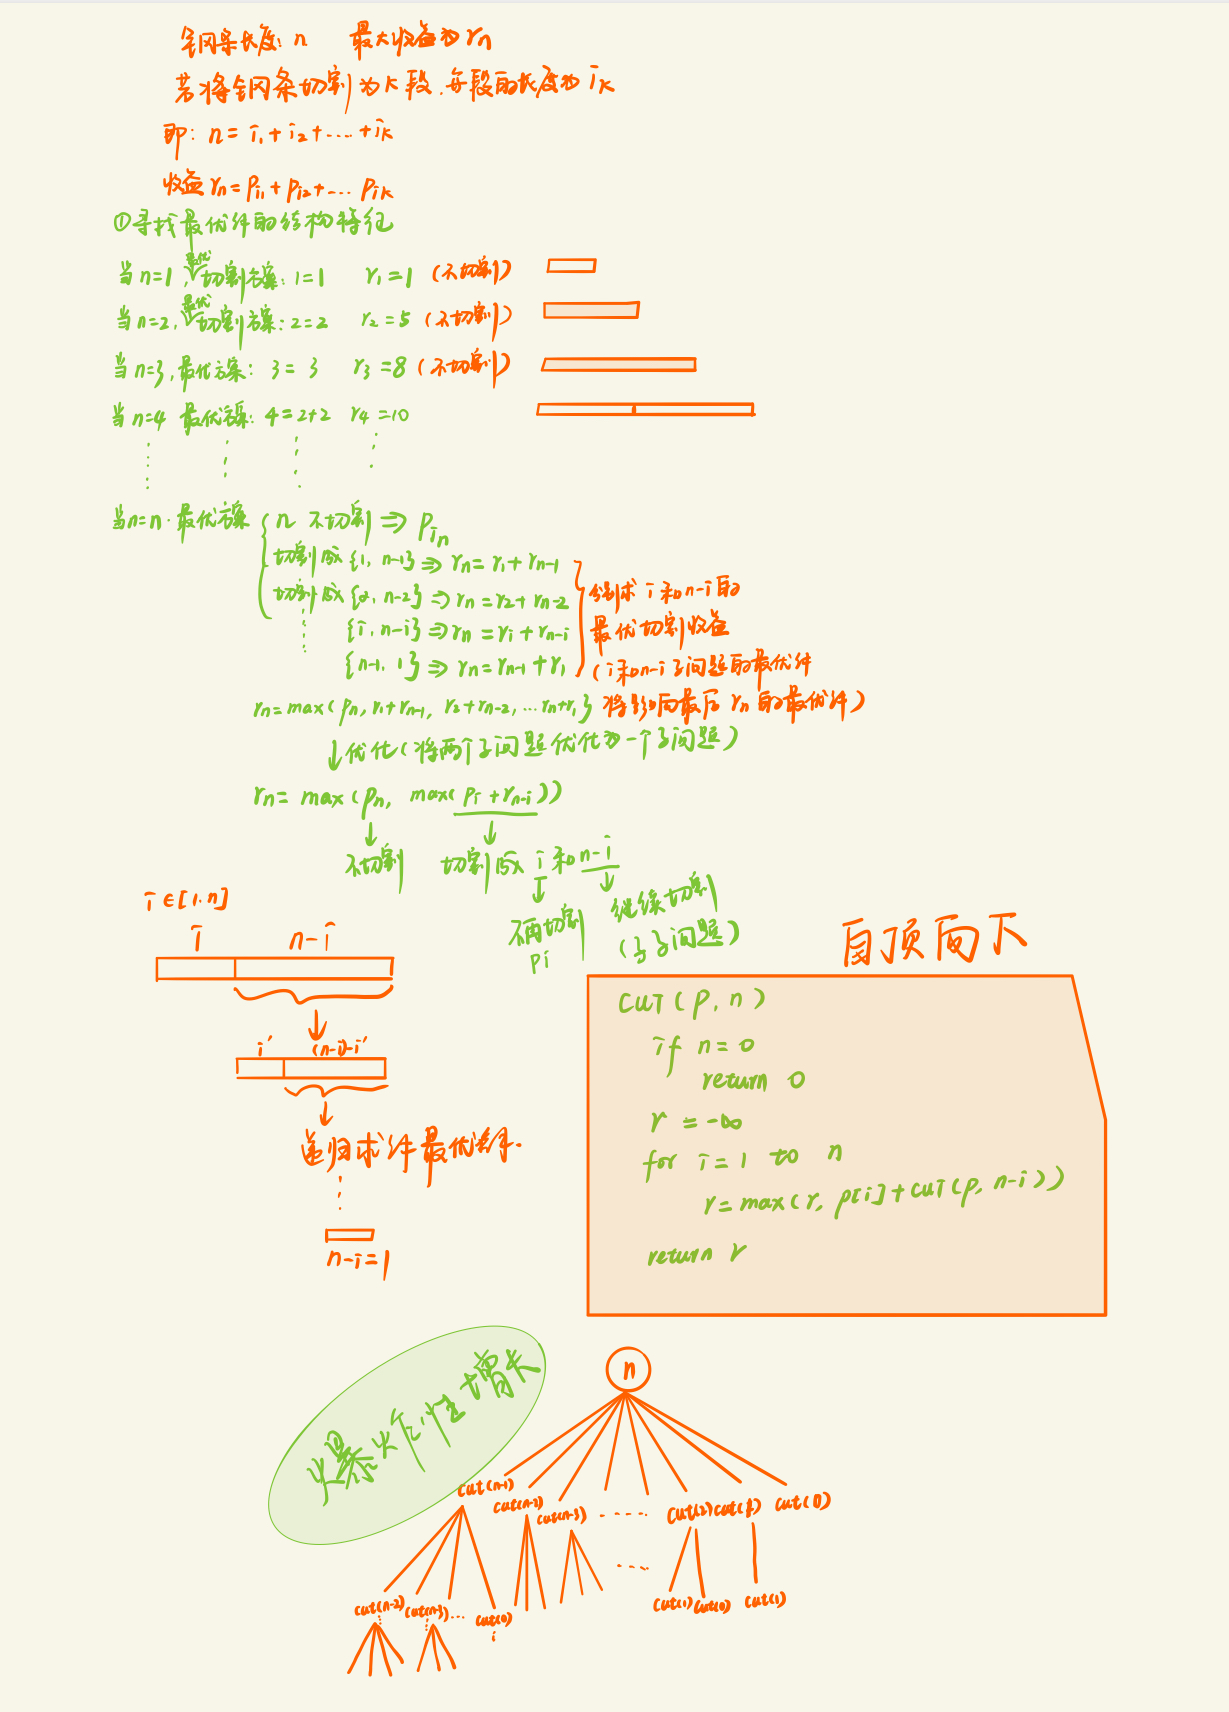 钢条长度: n 最大收益为 rn
若将钢条切割为 k 段, 每段的长度为 ik
即: n = i1 + i2 + .... + ik
收益 rn = Pi1 + Pi2 + ... Pik
①寻找最优解的结构特征
当 n=1, 最优切割方案: 1=1 r1 = 1 (不切割)
当 n=2, 最优切割方案: 2=2 r2 = 5 (不切割)
当 n=3, 最优方案: 3 = 3 r3 = 8 (不切割)
当 n=4 最优方案: 4=2+2 r4 = 10
当 n=n. 最优方案 { n 不切割 ⇒ Pin
切割成 {1, n-1} ⇒ rn = r1 + rn-1
切割成 {2, n-2} ⇒ rn = r2 + rn-2
{i, n-i} ⇒ rn = ri + rn-i
{n-1, 1} ⇒ rn = rn-1 + r1
分别求 i 和 n-i 的
最优切割收益
(i 和 n-i 子问题的最优解
将影响最后 rn 的最优解)
rn = max(Pn, r1+rn-1, r2+rn-2, ... rn+r1}
↓优化(将两个子问题优化为一个子问题)
rn = max(Pn, max(Pi + rn-i))
不切割 切割成 i 和 n-i
不再切割 继续切割
Pi (子子问题)
i ∈ [1.n]
i n-i
i' (n-i)-i'
递归求解最优解.
n-i=1
自顶向下
CUT(P, n)
if n = 0
return 0
r = -∞
for i = 1 to n
r = max(r, p[i] + CUT(p, n-i))
return r
爆炸性增长
n
cut(n-1) cut(n-2) cut(n-3) ···· cut(2) cut(1) cut(0)
cut(n-2) cut(n-3) ··· cut(0) cut(1) cut(0) cut(1)